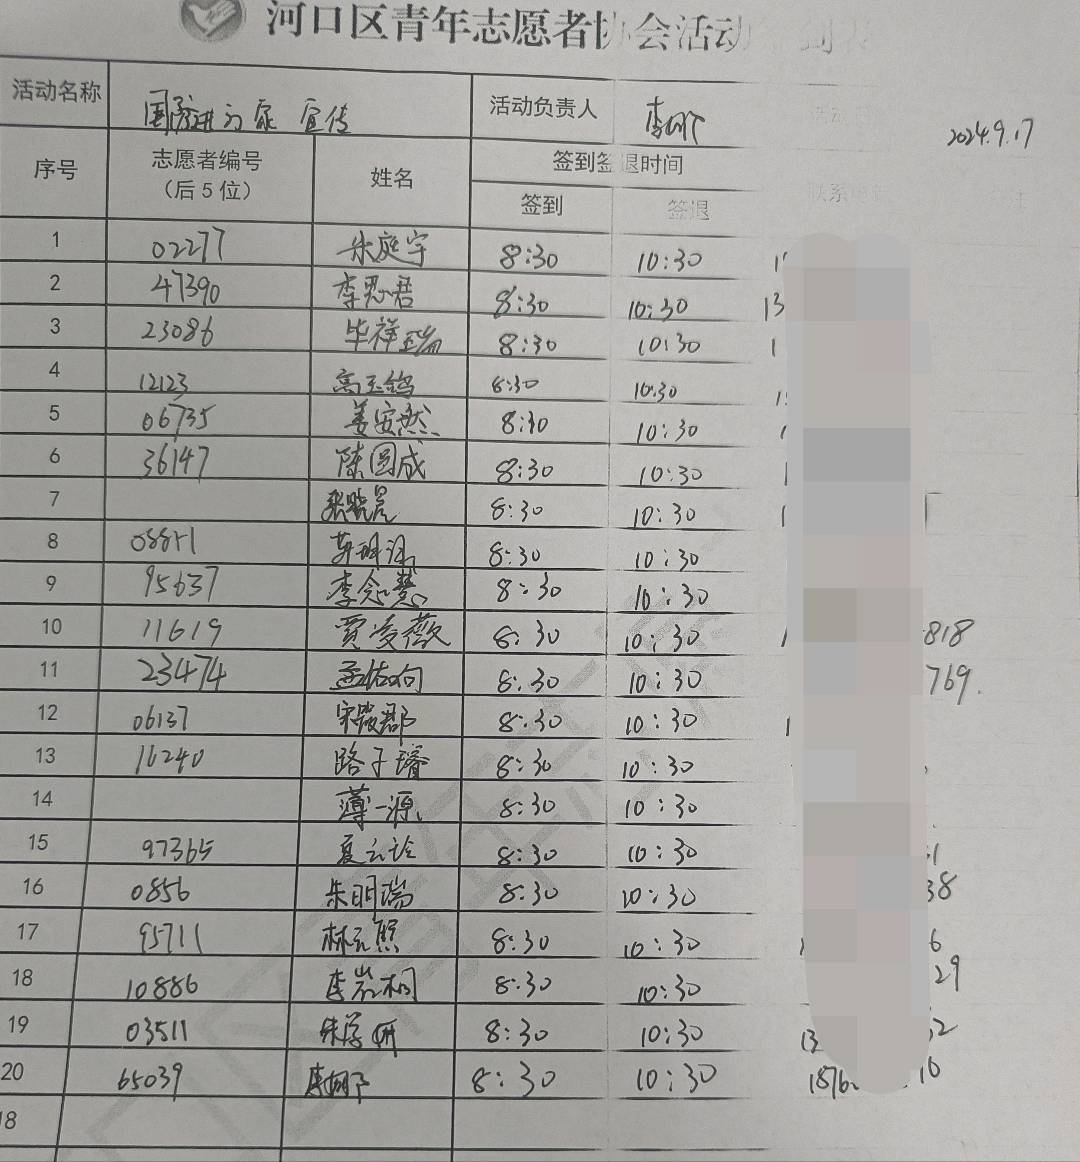 河口区青年志愿者协会活动签到表
活动名称 国防进万家 宣传 活动负责人 2024.9.17
序号 志愿者编号（后5位） 姓名 签到签退时间 联系电话
签到 签退
1 02277 朱庭宇 8:30 10:30
2 47390 李思君 8:30 10:30 13
3 23086 毕祥瑞 8:30 10:30 1
4 12123 高玉鸽 8:30 10:30
5 06735 姜安然 8:30 10:30
6 36147 陈圆成 8:30 10:30
7 张晓晨 8:30 10:30
8 8:30 10:30
9 95637 李念慧 8:30 10:30
10 11619 贾凌薇 8:30 10:30 818
11 23474 孟佑向 8:30 10:30 769.
12 06137 8:30 10:30
13 16240 路子璿 8:30 10:30
14 薄一源 8:30 10:30
15 97365 夏云诠 8:30 10:30
16 0856 朱明瑞 8:30 10:30 38
17 95711 林元熙 8:30 10:30 6
18 10886 李岩桐 8:30 10:30 29
19 03511 朱学妍 8:30 10:30 13 32
20 65039 8:30 10:30 1876 16
18